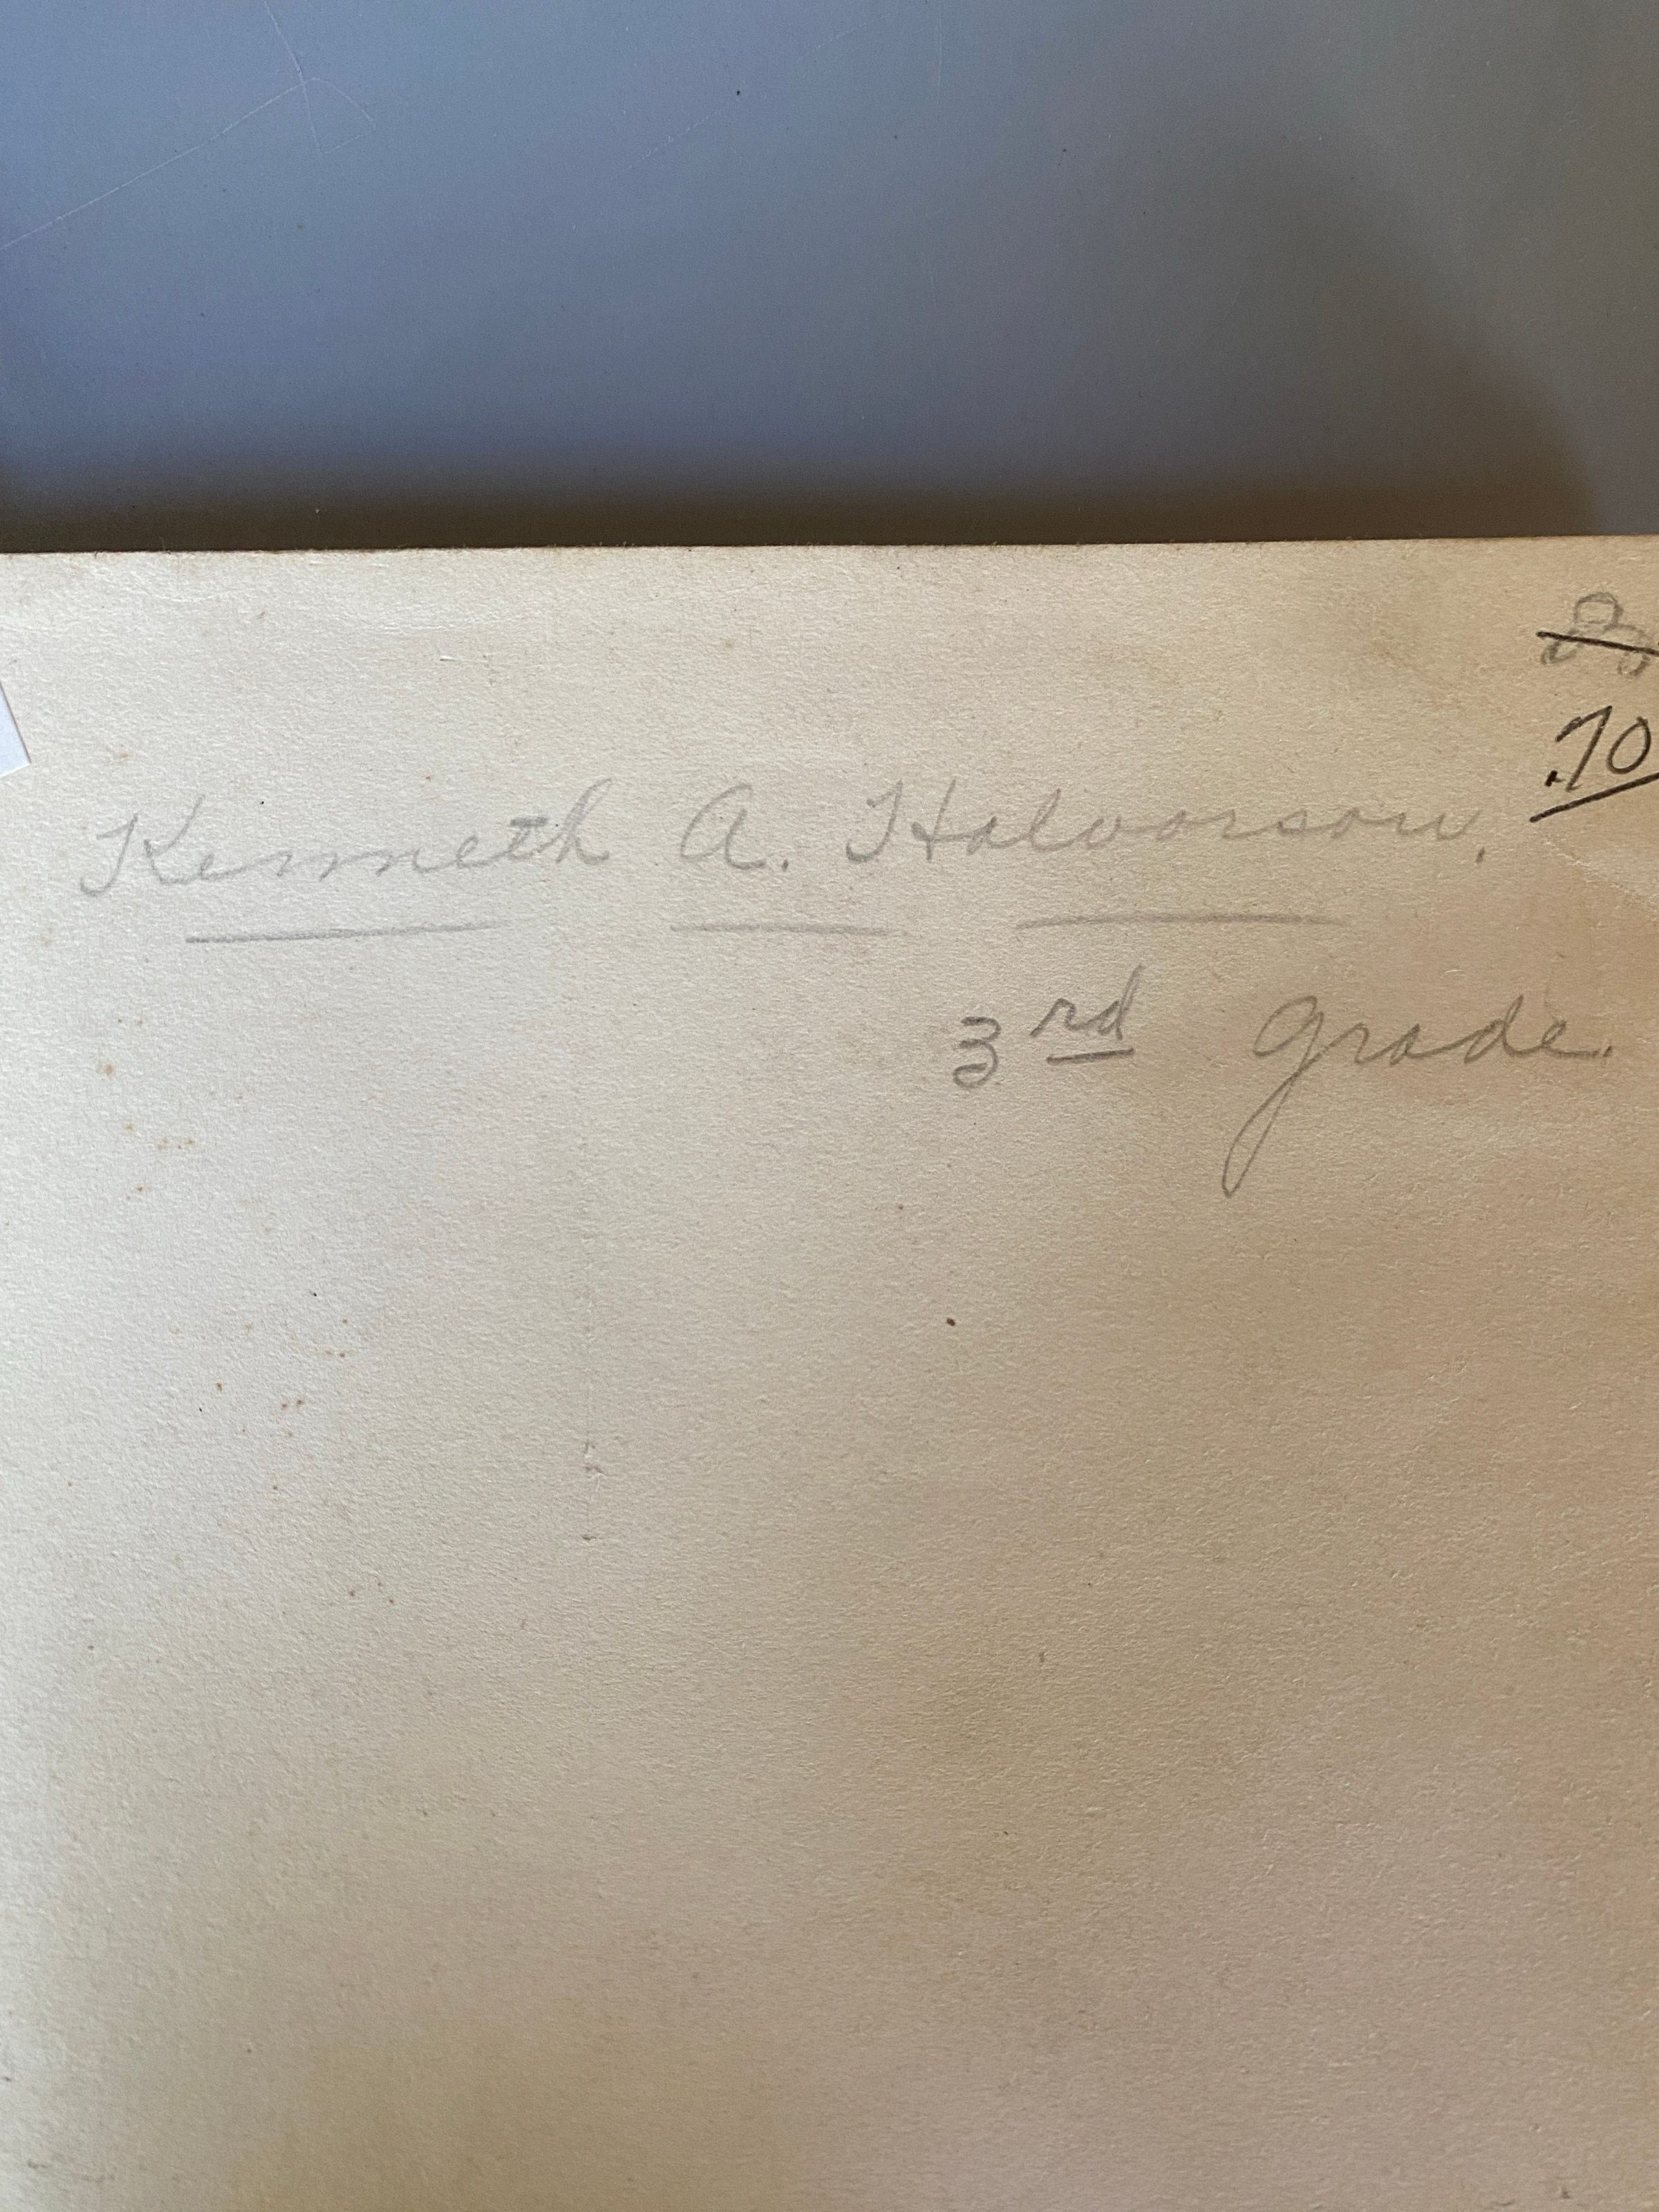 .70
Kenneth A. Halvorson.
3rd grade.